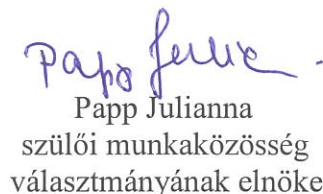 Papp Julianna
szülői munkaközösség
választmányának elnöke